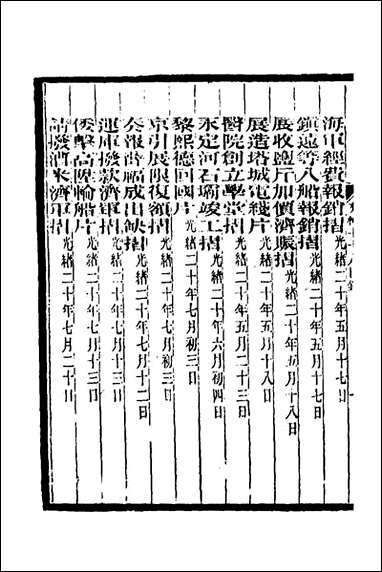 海軍經費報銷摺光緒二十年五月十七日
鎮遠等八船報銷摺光緒二十年五月十七日
展收鹽斤加價濟賑摺光緒二十年五月十八日
展造塔城電綫片光緒二十年五月十八日
醫院創立學堂摺光緒二十年五月二十三日
永定河石壩竣工摺光緒二十年六月初四日
黎熙德回國片光緒二十年七月初三日
京引展限復額摺光緒二十年七月初三日
奏報晉祐成出缺摺光緒二十年七月十二日
運庫撥款濟軍摺光緒二十年七月十三日
倭擊高陞輪船片光緒二十年七月十三日
請撥漕米濟軍摺光緒二十年七月二十日